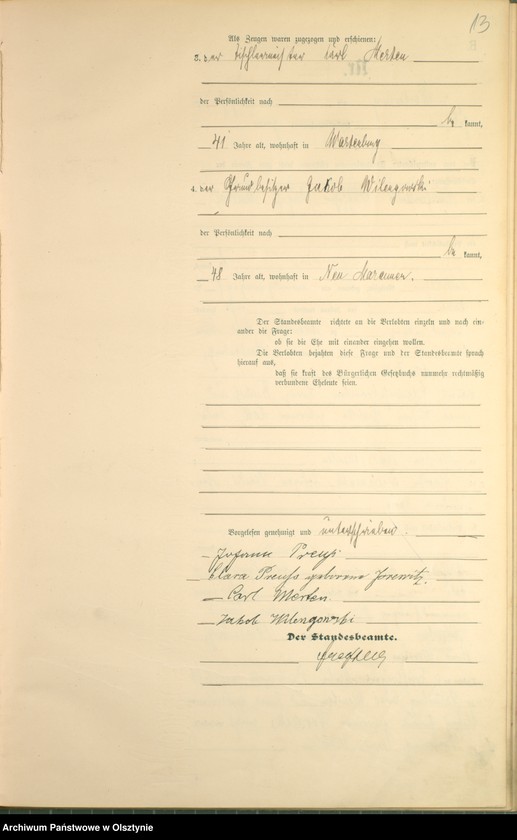 13
Als Zeugen waren zugezogen und erschienen:
3. der Tischlermeister Carl Merten
der Persönlichkeit nach
be kannt,
41 Jahre alt, wohnhaft in Wartenburg
4. der Grundbesitzer Jakob Wilengowski
der Persönlichkeit nach
be kannt,
48 Jahre alt, wohnhaft in Neu Maraunen.
Der Standesbeamte richtete an die Verlobten einzeln und nach ein-
ander die Frage:
ob sie die Ehe mit einander eingehen wollen.
Die Verlobten bejahten diese Frage und der Standesbeamte sprach
hierauf aus,
daß sie kraft des Bürgerlichen Gesetzbuchs nunmehr rechtmäßig
verbundene Eheleute seien.
Vorgelesen genehmigt und unterschrieben.
Johann Preuß
Clara Preuß geborene
Carl Merten.
Jakob Wilengowski
Der Standesbeamte.
Archiwum Państwowe w Olsztynie